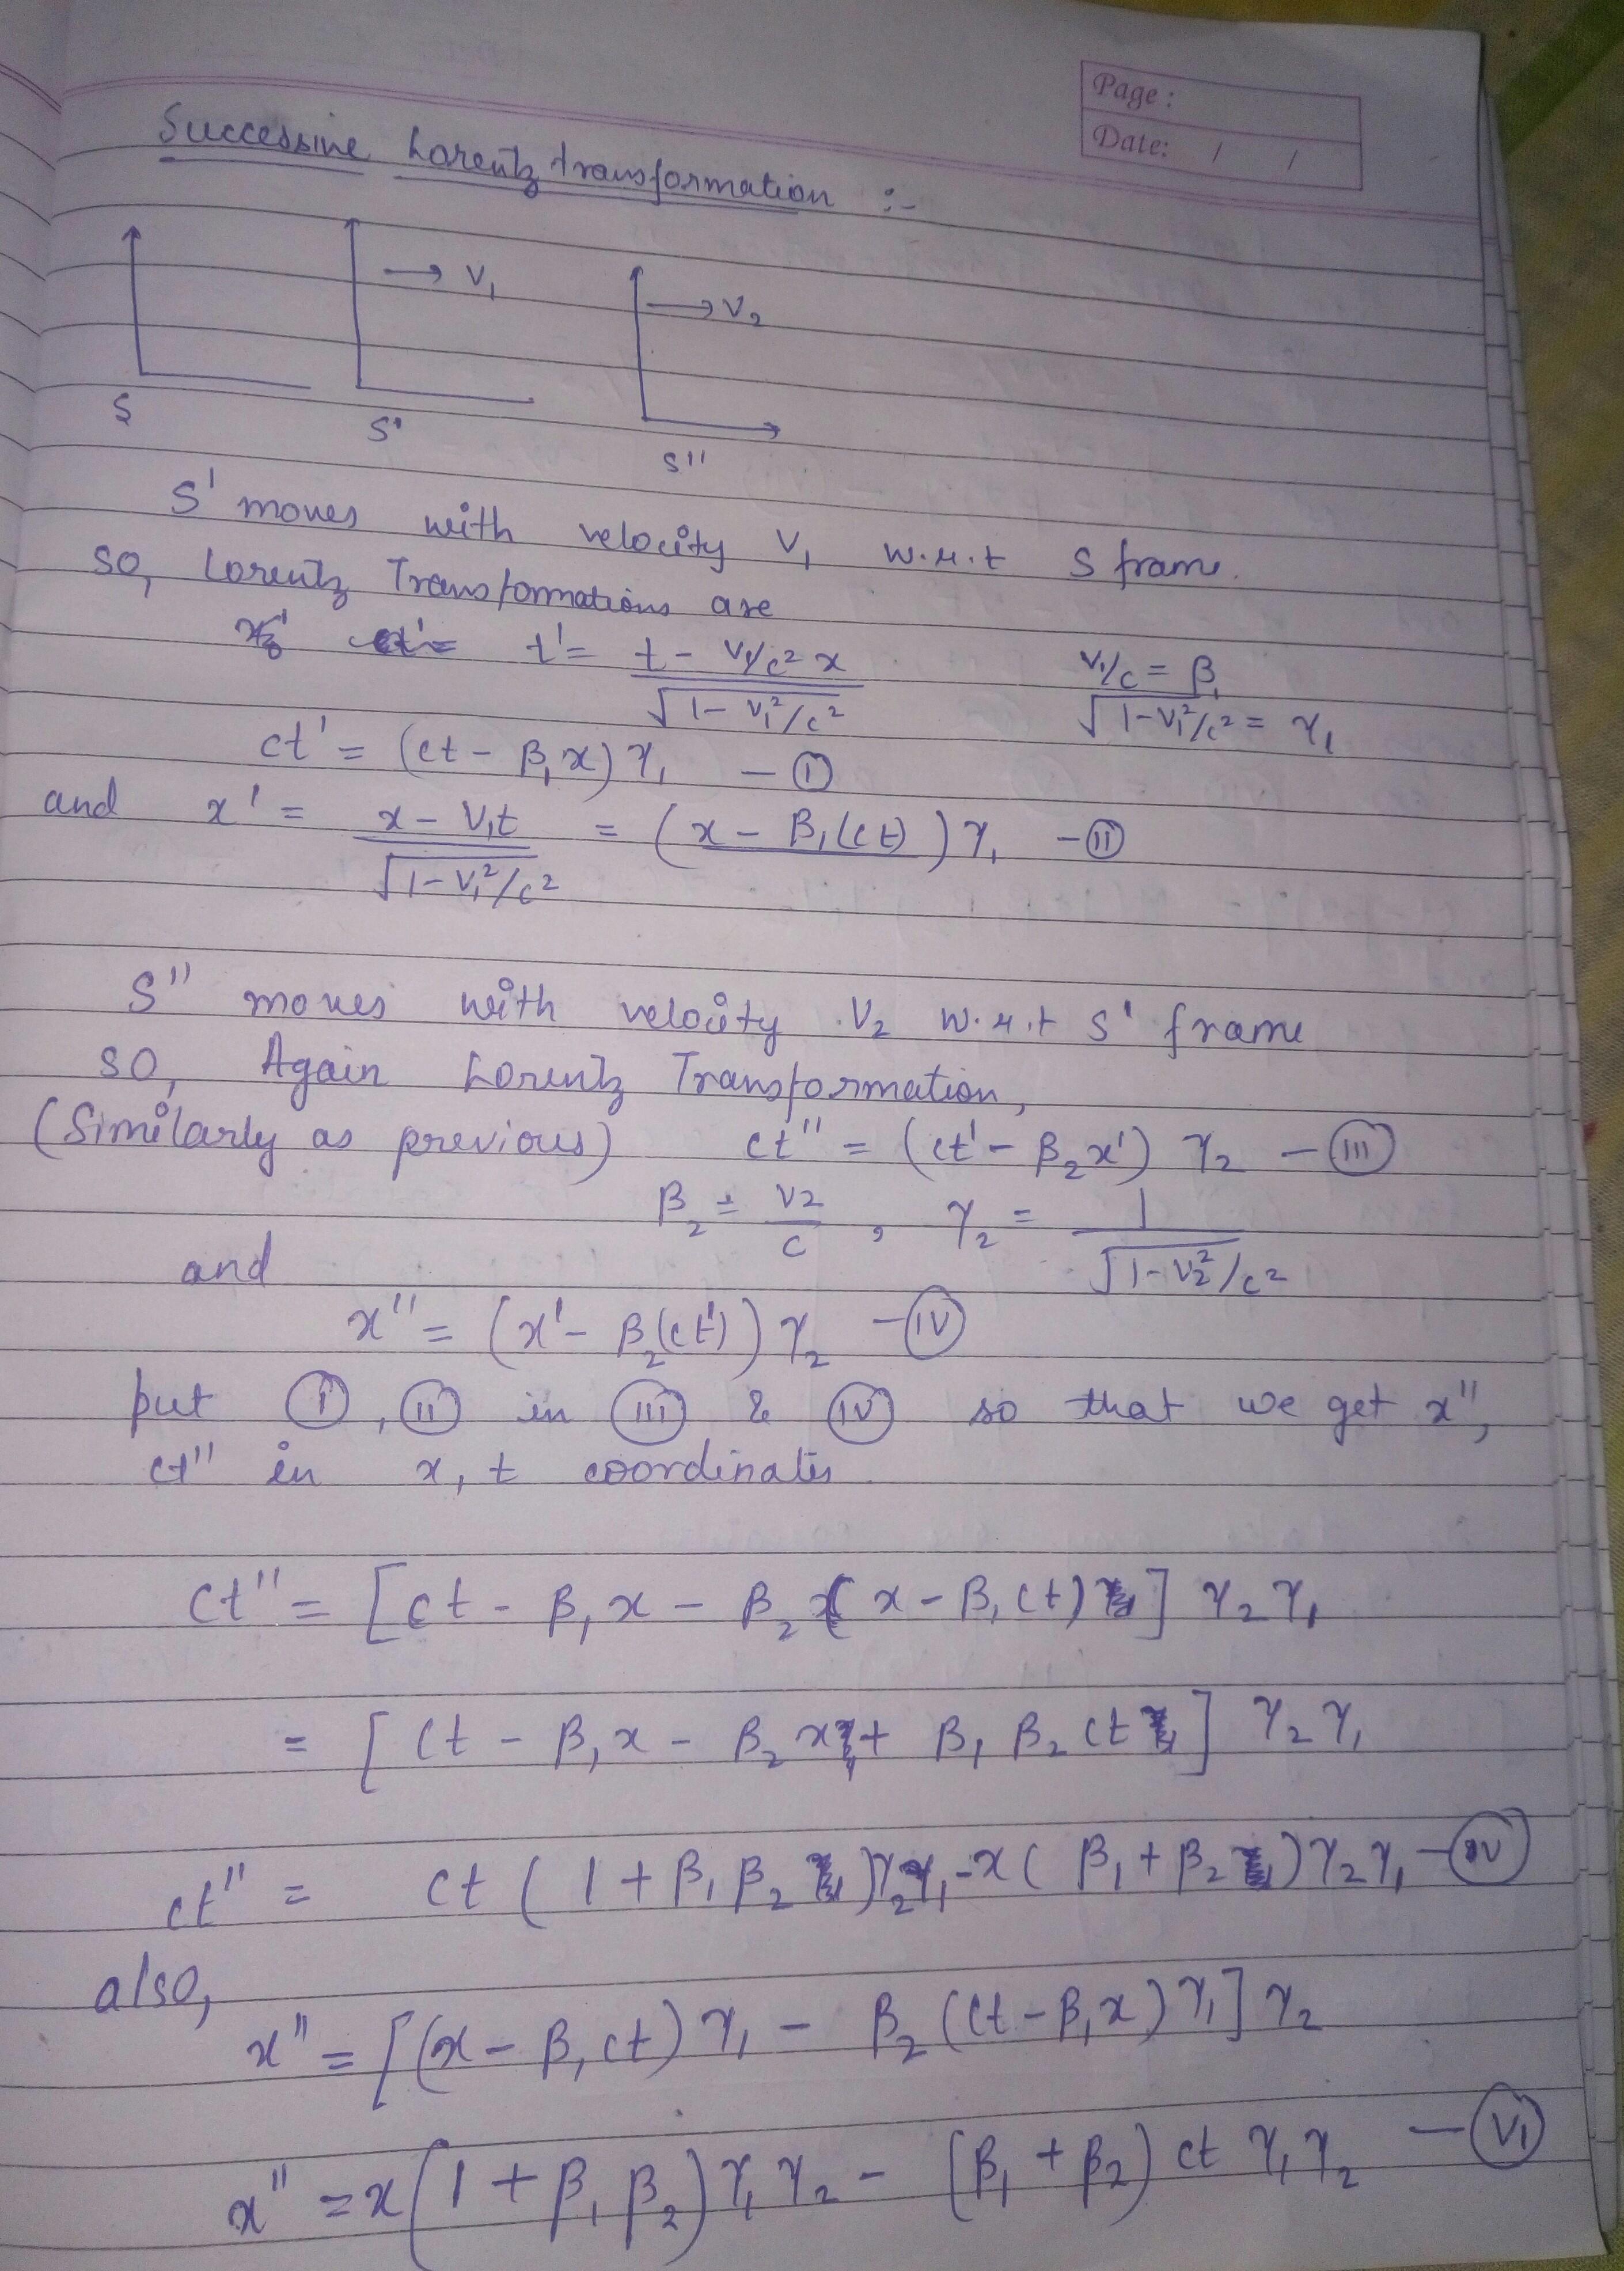 Page :
Date: / /
Successive Lorentz transformation :-
→ V₁
→ V₂
S
S'
S''
S' moves with velocity V₁ w.r.t S frame.
so, Lorentz Transformations are
t' = (t - V₁/c² x) / √(1 - V₁²/c²)
V₁/c = β₁
√(1 - V₁²/c²) = γ₁
ct' = (ct - β₁x) γ₁ - (I)
and x' = (x - V₁t) / √(1 - V₁²/c²) = (x - β₁(ct)) γ₁ - (II)
S'' moves with velocity V₂ w.r.t S' frame
so, Again Lorentz Transformation,
(Similarly as previous) ct'' = (ct' - β₂x') γ₂ - (III)
β₂ = V2/c , γ₂ = 1/√(1 - V₂²/c²)
and
x'' = (x' - β₂(ct')) γ₂ - (IV)
put (I), (II) in (III) & (IV) so that we get x'',
ct'' in x, t coordinates.
ct'' = [ct - β₁x - β₂(x - β₁ct)] γ₂γ₁
= [ct - β₁x - β₂x + β₁β₂ct] γ₂γ₁
ct'' = ct (1 + β₁β₂)γ₂γ₁ - x(β₁ + β₂)γ₂γ₁ - (V)
also,
x'' = [(x - β₁ct) γ₁ - β₂(ct - β₁x)γ₁] γ₂
x'' = x(1 + β₁β₂)γ₁γ₂ - (β₁ + β₂) ct γ₁γ₂ - (VI)